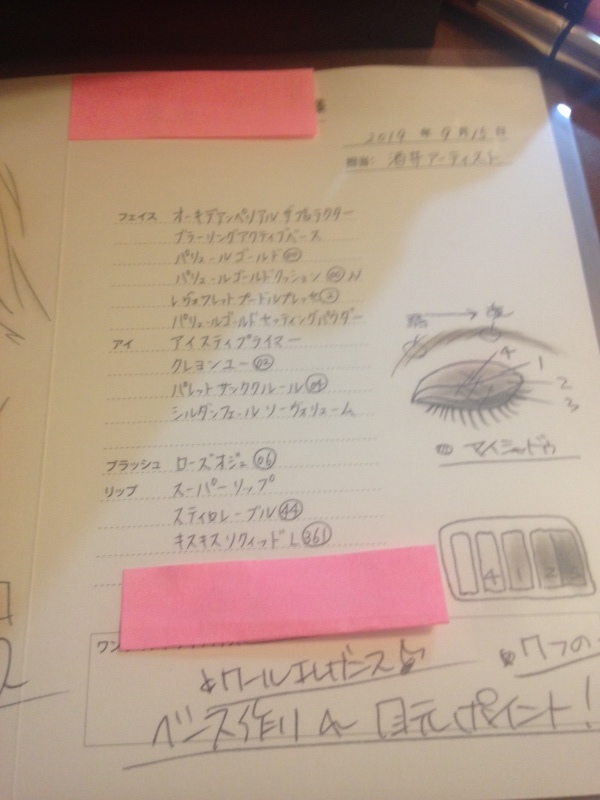 様
2019年9月15日
担当: 酒井アーティスト
フェイス オーキデアンペリアル ザ プロテクター
ブラーリングアクティブベース
パリュールゴールド 00
パリュールゴールドクッション 00 N
レ ヴォワレット プードル プレッセ 2
パリュールゴールドセッティングパウダー
アイ アイステイプライマー
クレヨンユー 02
パレットサンククルール 04
シルダンフェール ソーヴォリューム
ブラッシュ ローズオジュ 06
リップ スーパーリップ
スティロレーブル 44
キスキスリクィッド L361
4
1
2
3
アイシャドウ
4 1 2 3
ワン
クールエレガンス
ベース作り
目元ポイント!